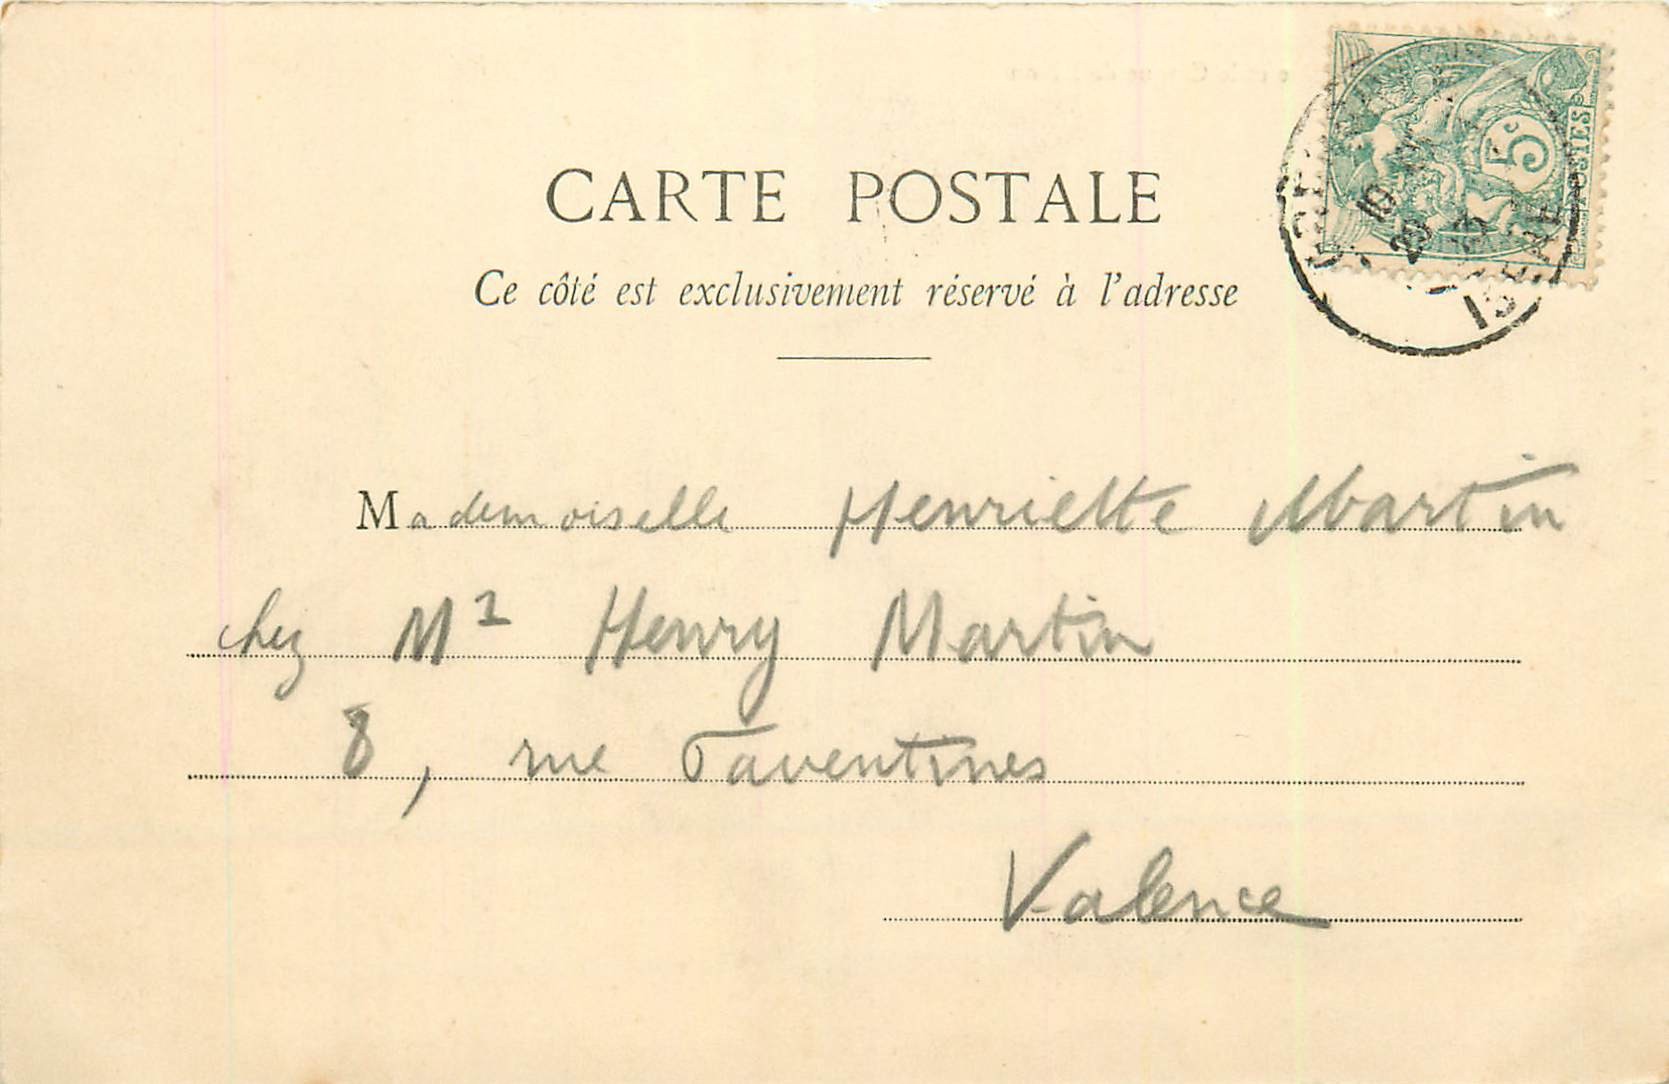 CARTE POSTALE
Ce côté est exclusivement réservé à l'adresse
5c
POSTES
ISÈRE
Mademoiselle Henriette Martin
chez Mr Henry Martin
8, rue Faventines
Valence